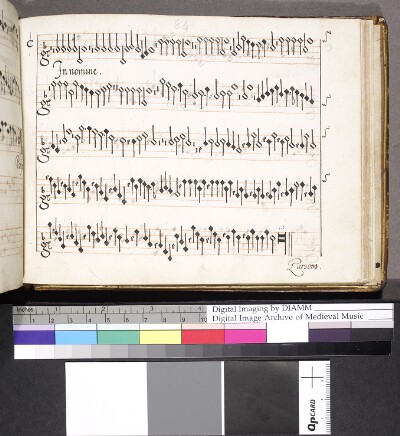 84
C
In nomine.
Parsons.
inches 1 2 3 4
1 2 3 4 5 6 7 8 9 10
Digital Imaging by DIAMM
Digital Image Archive of Medieval Music
QPCARD